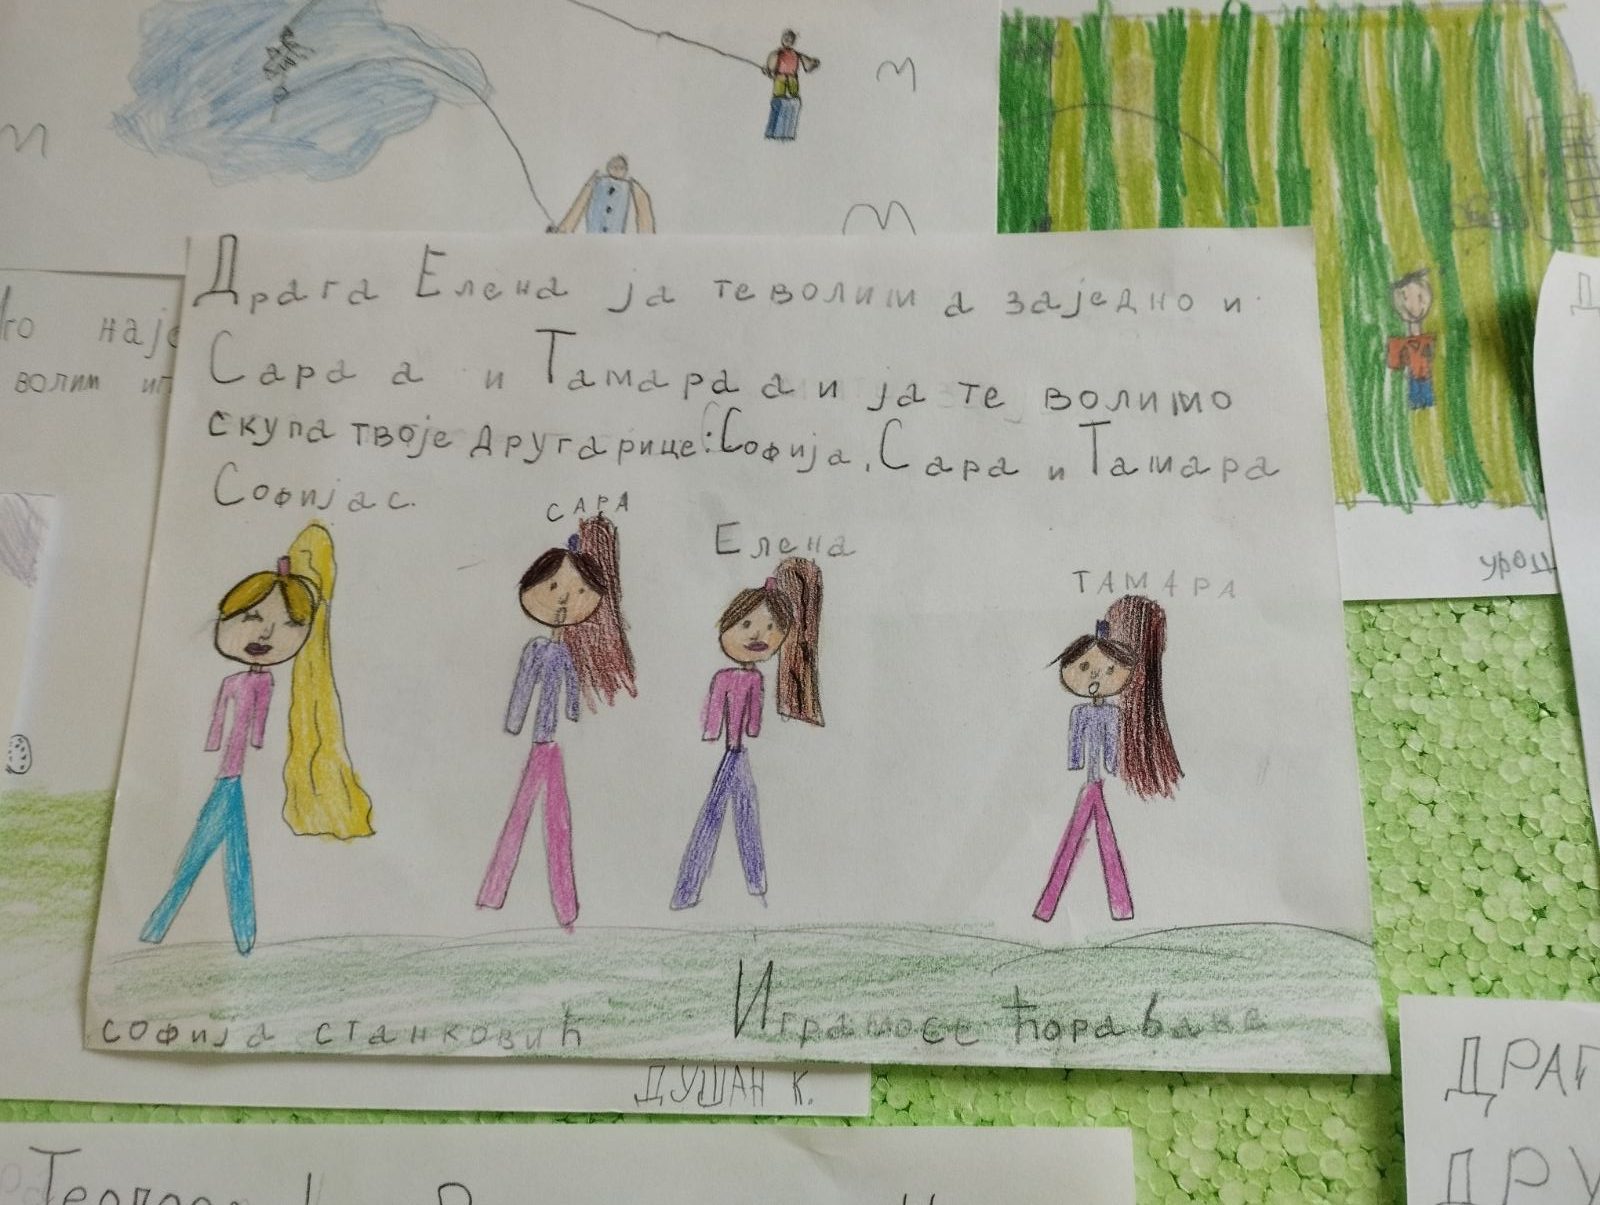 најс
волим иг
Драга Елена ја теволим а заједно и
Сара а и Тамара а и ја те волимо
скупа твоје другарице: Софија, Сара и Тамара
Софија с.
САРА
Елена
ТАМАРА
софија станковић
Играмо се ћора баке
ДУШАН К.
ДРАГ
ДРУ